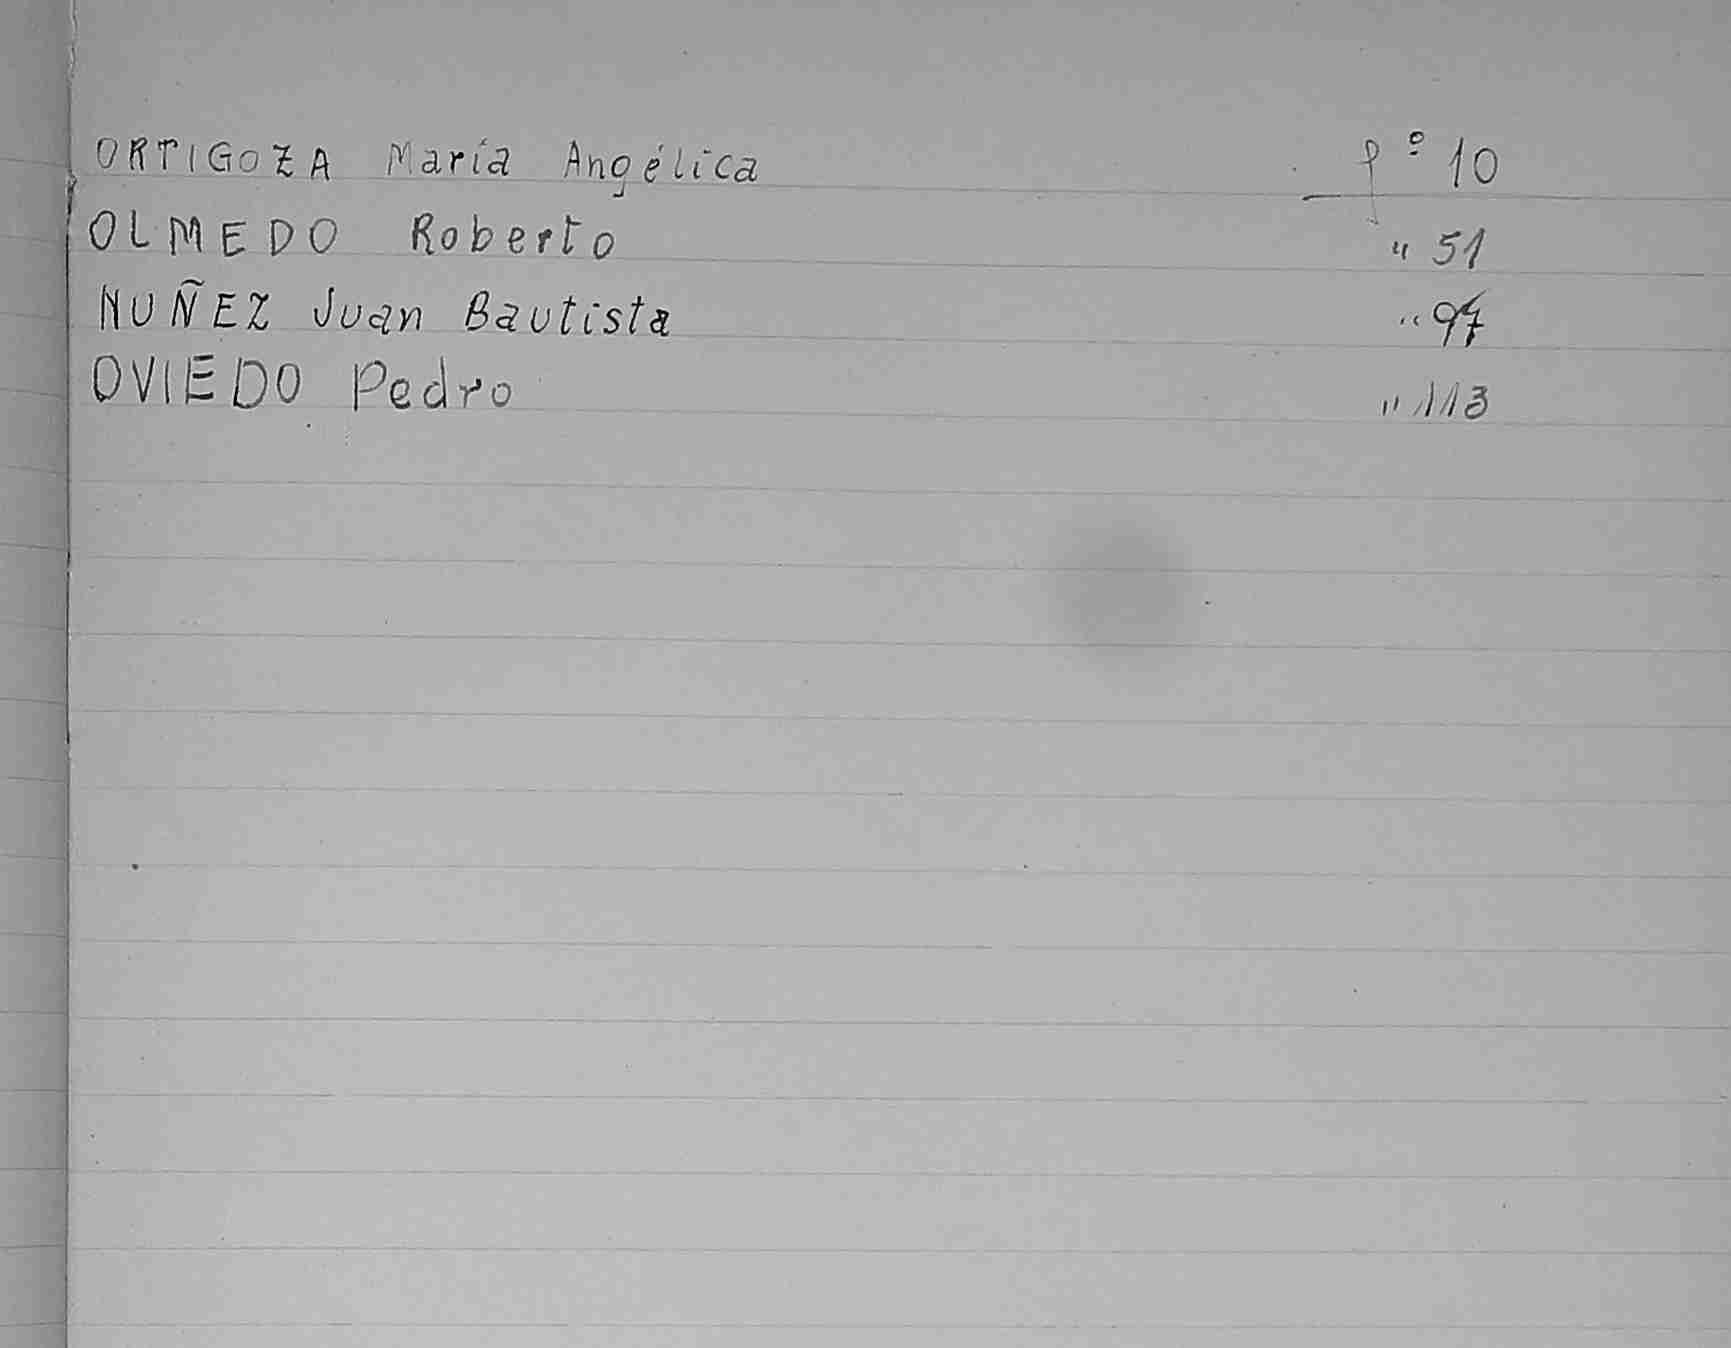 ORTIGOZA María Angélica fº 10
OLMEDO Roberto " 51
NUÑEZ Juan Bautista "
OVIEDO Pedro " 113